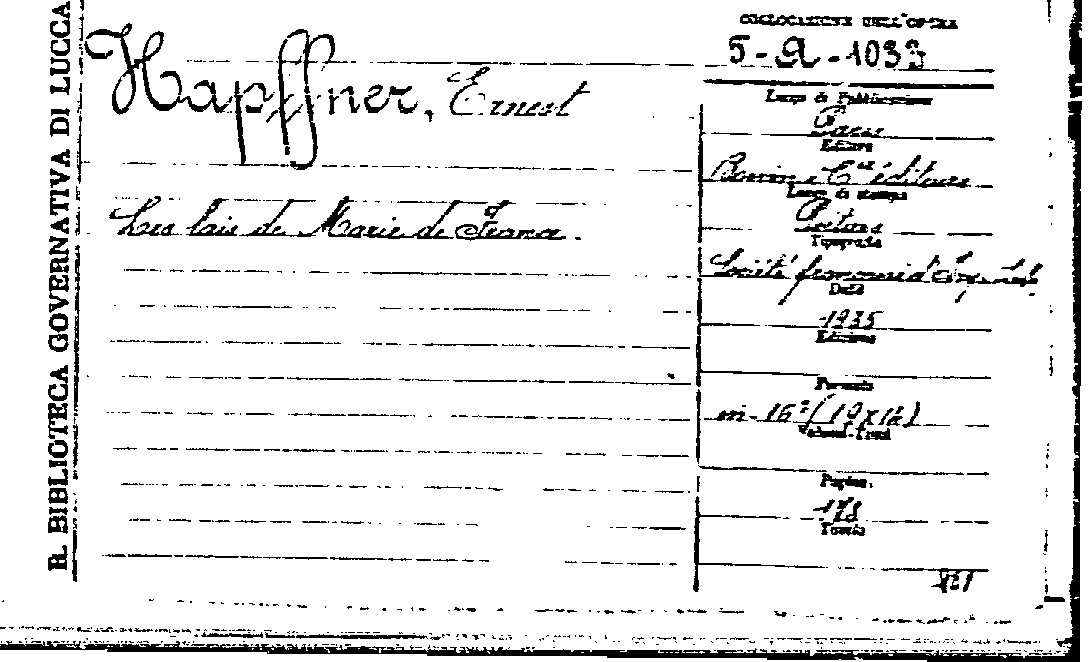 R. BIBLIOTECA GOVERNATIVA DI LUCCA
COLLOCAZIONE DELL'OPERA
5-A-1033
Hapffner, Ernest
Luogo di Pubblicazione
Editore
Boivin & C.ie éditeurs
Luogo di stampa
Les lais de Marie de France.
Poitiers
Tipografia
Société française d'Imp.
Data
1935
Edizione
Formato
in-16°(19x12)
Pagine
178
Tavole